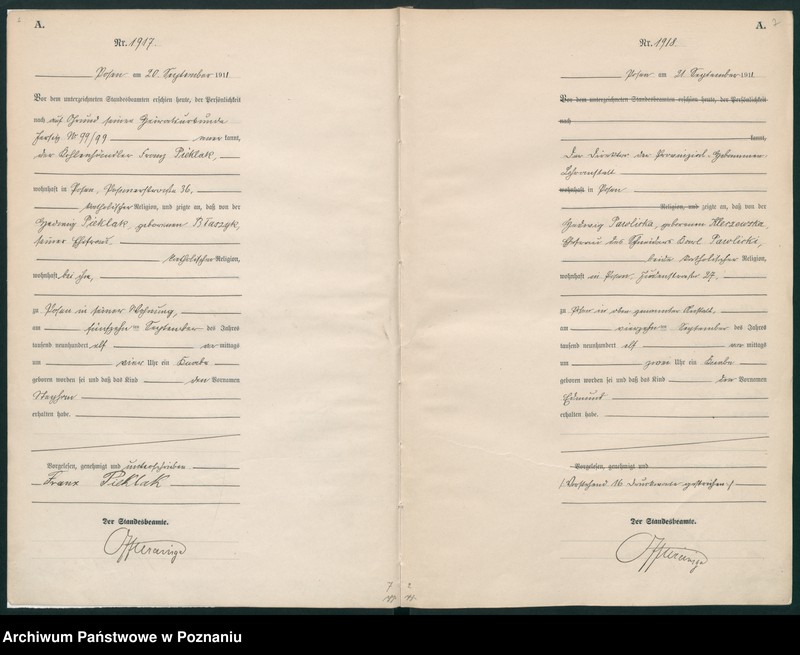 A.
Nr. 1917.
Posen am 20. September 1911
Vor dem unterzeichneten Standesbeamten erschien heute, der Persönlichkeit
nach auf Grund seiner Heiratsurkunde
Jersitz Nr 99/99 anerkannt,
der Kohlenhändler Franz Picklak,
wohnhaft in Posen, Posenerstrasse 36,
katholischer Religion, und zeigte an, daß von der
Hedwig Picklak, geborenen Blaszyk,
seiner Ehefrau
katholischer Religion,
wohnhaft bei ihm,
zu Posen in seiner Wohnung,
am fünfzehnten September des Jahres
tausend neunhundert elf mittags
um vier Uhr ein Knabe
geboren worden sei und daß das Kind den Vornamen
Stephan
erhalten habe.
Vorgelesen, genehmigt und unterschrieben
Franz Picklak
Der Standesbeamte.
A.
Nr. 1918.
Posen am 21. September 1911
Vor dem unterzeichneten Standesbeamten erschien heute, der Persönlichkeit
nach
kannt,
Der Direktor der Provinzial-Hebammen-
Lehranstalt
wohnhaft in Posen
Religion, und zeigte an, daß von der
Hedwig Pawlicka, geborenen
Ehefrau des Schneiders Karl Pawlicki,
beide katholischer Religion,
wohnhaft in Posen, Judenstrasse 27.
zu Posen in oben genannter Anstalt,
am vierzehnten September des Jahres
tausend neunhundert elf mittags
um zwei Uhr ein Knabe
geboren worden sei und daß das Kind den Vornamen
Edmund
erhalten habe.
Vorgelesen, genehmigt und
/Vorstehend 16 Druckworte gestrichen/
Der Standesbeamte.
Archiwum Państwowe w Poznaniu